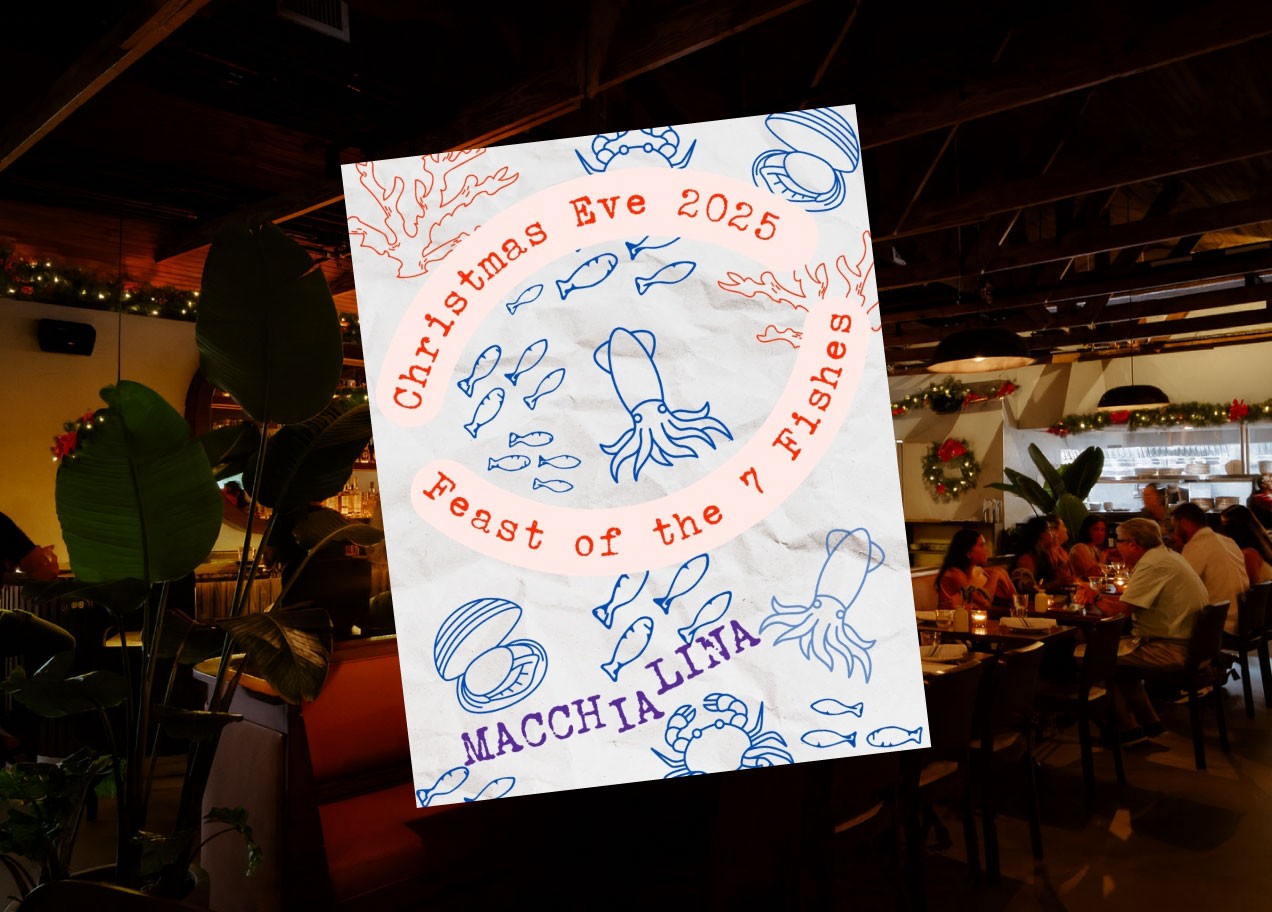 Christmas Eve 2025
Feast of the 7 Fishes
MACCHIALINA